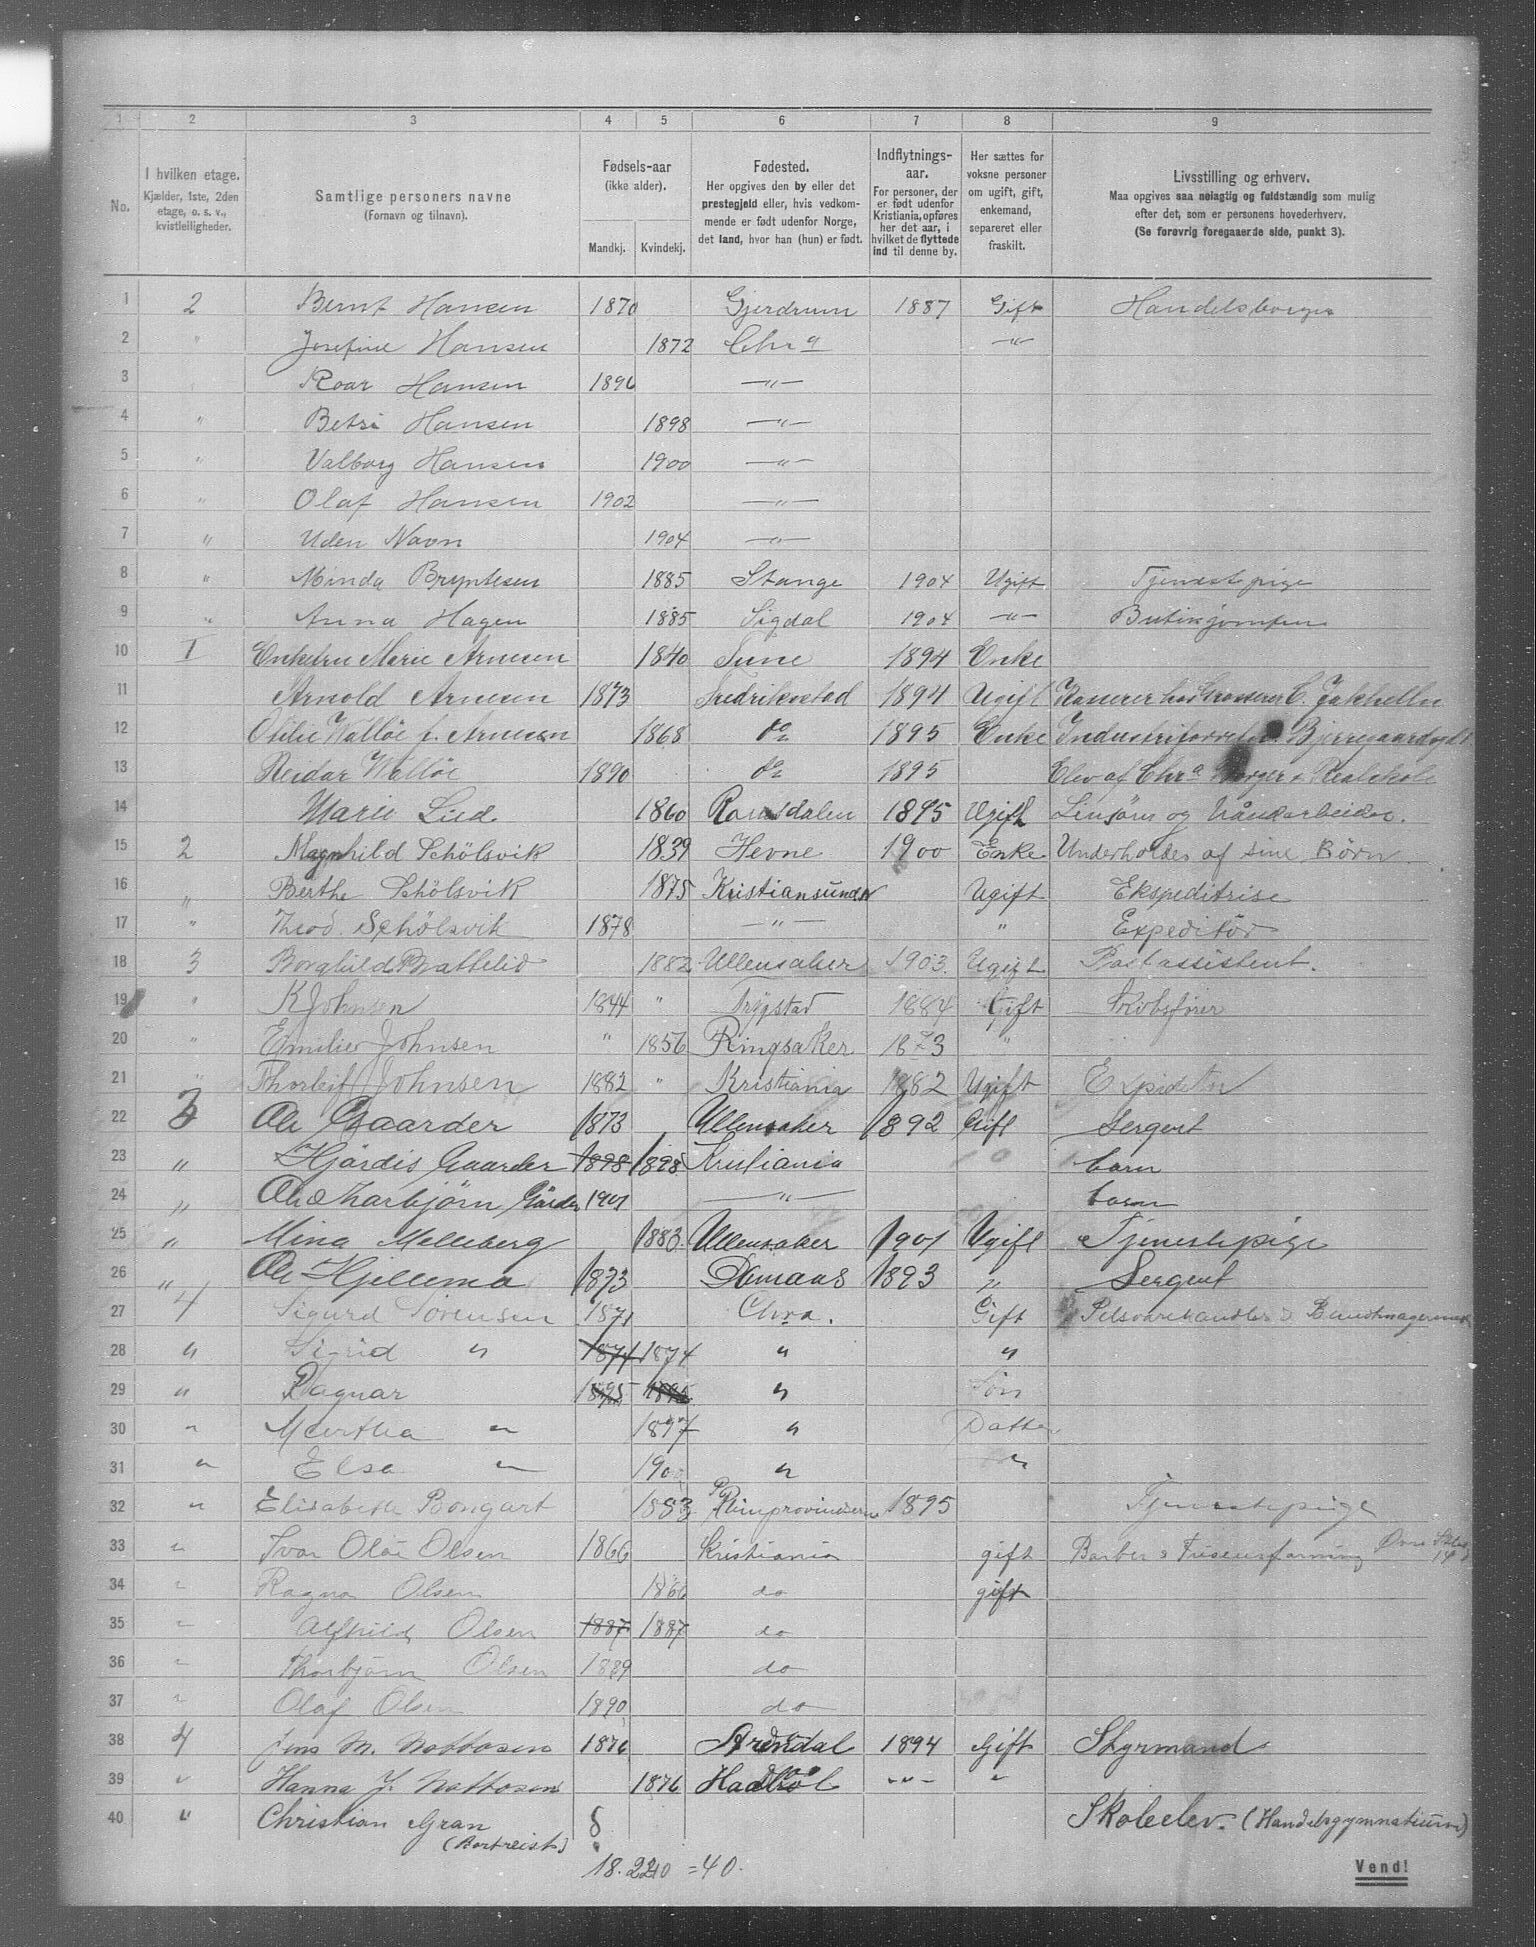 1 2 3 4 5 6 7 8 9
No.
I hvilken etage.
Kjælder, 1ste, 2den
etage, o. s. v.,
kvistleiligheder.
Samtlige personers navne
(Fornavn og tilnavn).
Fødsels-aar
(ikke alder).
Mandkj. Kvindekj.
Fødested.
Her opgives den by eller det
prestegjeld eller, hvis vedkom-
mende er født udenfor Norge,
det land, hvor han (hun) er født.
Indflytnings-
aar.
For personer, der
er født udenfor
Kristiania, opføres
her det aar, i
hvilket de flyttede
ind til denne by.
Her sættes for
voksne personer
om ugift, gift,
enkemand,
separeret eller
fraskilt.
Livsstilling og erhverv.
Maa opgives saa nøiagtig og fuldstændig som mulig
efter det, som er personens hovederhverv.
(Se forøvrig foregaaende side, punkt 3).
1 2 Bernt Hansen 1870 Gjerdrum 1887 Gift Handelsborger
2 " Josefine Hansen 1872 Chr a —"—
3 Roar Hansen 1896 —"—
4 " Betsi Hansen 1898 —"—
5 " Valborg Hansen 1900 —"—
6 " Olaf Hansen 1902 —"—
7 " Uden Navn 1904 —"—
8 " Minda Bryntesen 1885 Stange 1904 Ugift Tjenestepige
9 " Anna Hagen 1885 Sigdal 1904 —"—
10 I Enkefru Marie Arnesen 1840 1894 Enke
11 Arnold Arnesen 1873 Fredrikstad 1894 Ugift Kasserer hos Grosserer C.
12 Otilie Walløe f. Arnesen 1868 do 1895 Enke
13 Reidar Walløe 1890 do 1895 Elev af Chr a Borger & Realskole
14 Marie Lied. 1860 Romsdalen 1895 Ugift Linsøm og håndarbeider.
15 2 Magnhild Schölsvik 1839 Hevne 1900 Enke Underholdes af sine Børn
16 " Berthe Schölsvik 1875 Kristiansund N Ugift Ekspeditrise
17 " Theod. Schölsvik 1878 —"— " Expeditör
18 3 Borghild Brattelid 1882 Ullensaker 1903. Ugift Postassistent.
19 " K Johnsen 1844 " Trygstad 1884 Gift
20 " Emilie Johnsen " 1856 Ringsaker 1873 "
21 " Thorleif Johnsen 1882 " Kristiania 1882 Ugift
22 3 Ole Gaarder 1873 Ullensaker 1892 Gift Sergent
23 " Hjördis Gaarder 1898 1898 Kristiania barn
24 " Ole Thorbjörn Gårder 1901 —"— barn
25 " Mina Melleberg 1883. Ullensaker 1901 Ugift Tjenestepige
26 " Ole Hjellema 1873 1893 " Sergent
27 4 Sigurd Sörensen 1871 Chra. Gift Pelsvarehandler & Buntmager
28 " Sigrid " 1874 1874 " "
29 " Ragnar 1895 1895 " Sön
30 " Martha " 1897 " Datter
31 " Elsa " 190 " "
32 " Elisabeth Bongart 1883 Rhinprovinsen 1895 Tjenestepige
33 " Ivar Olai Olsen 1866 Kristiania gift Barber & Frisørforretning
34 " Ragna Olsen 1866 do gift
35 " Alfhild Olsen 1887 1887 do
36 " Thorbjørn Olsen 1889 do
37 " Olaf Olsen 1890 do
38 4 Jens M. Nottosen 1876 Arendal 1894 Gift Styrmand
39 " Hanna J. Nottosen 1876 —"— "
40 " Christian Gran Skoleelev. (Handelsgymnatium)
(Bortreist)
18. 22 = 40.
Vend!